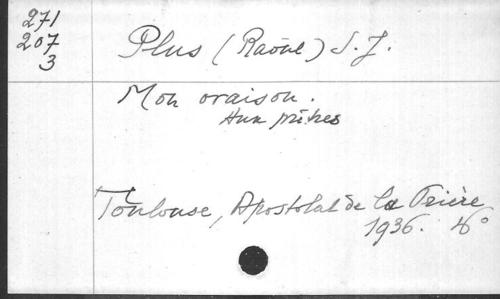 271
207
3
Plus (Raoul) S. J.
Mon oraison.
Aux prêtres
Toulouse, Apostolat de la Prière
1936. 4°